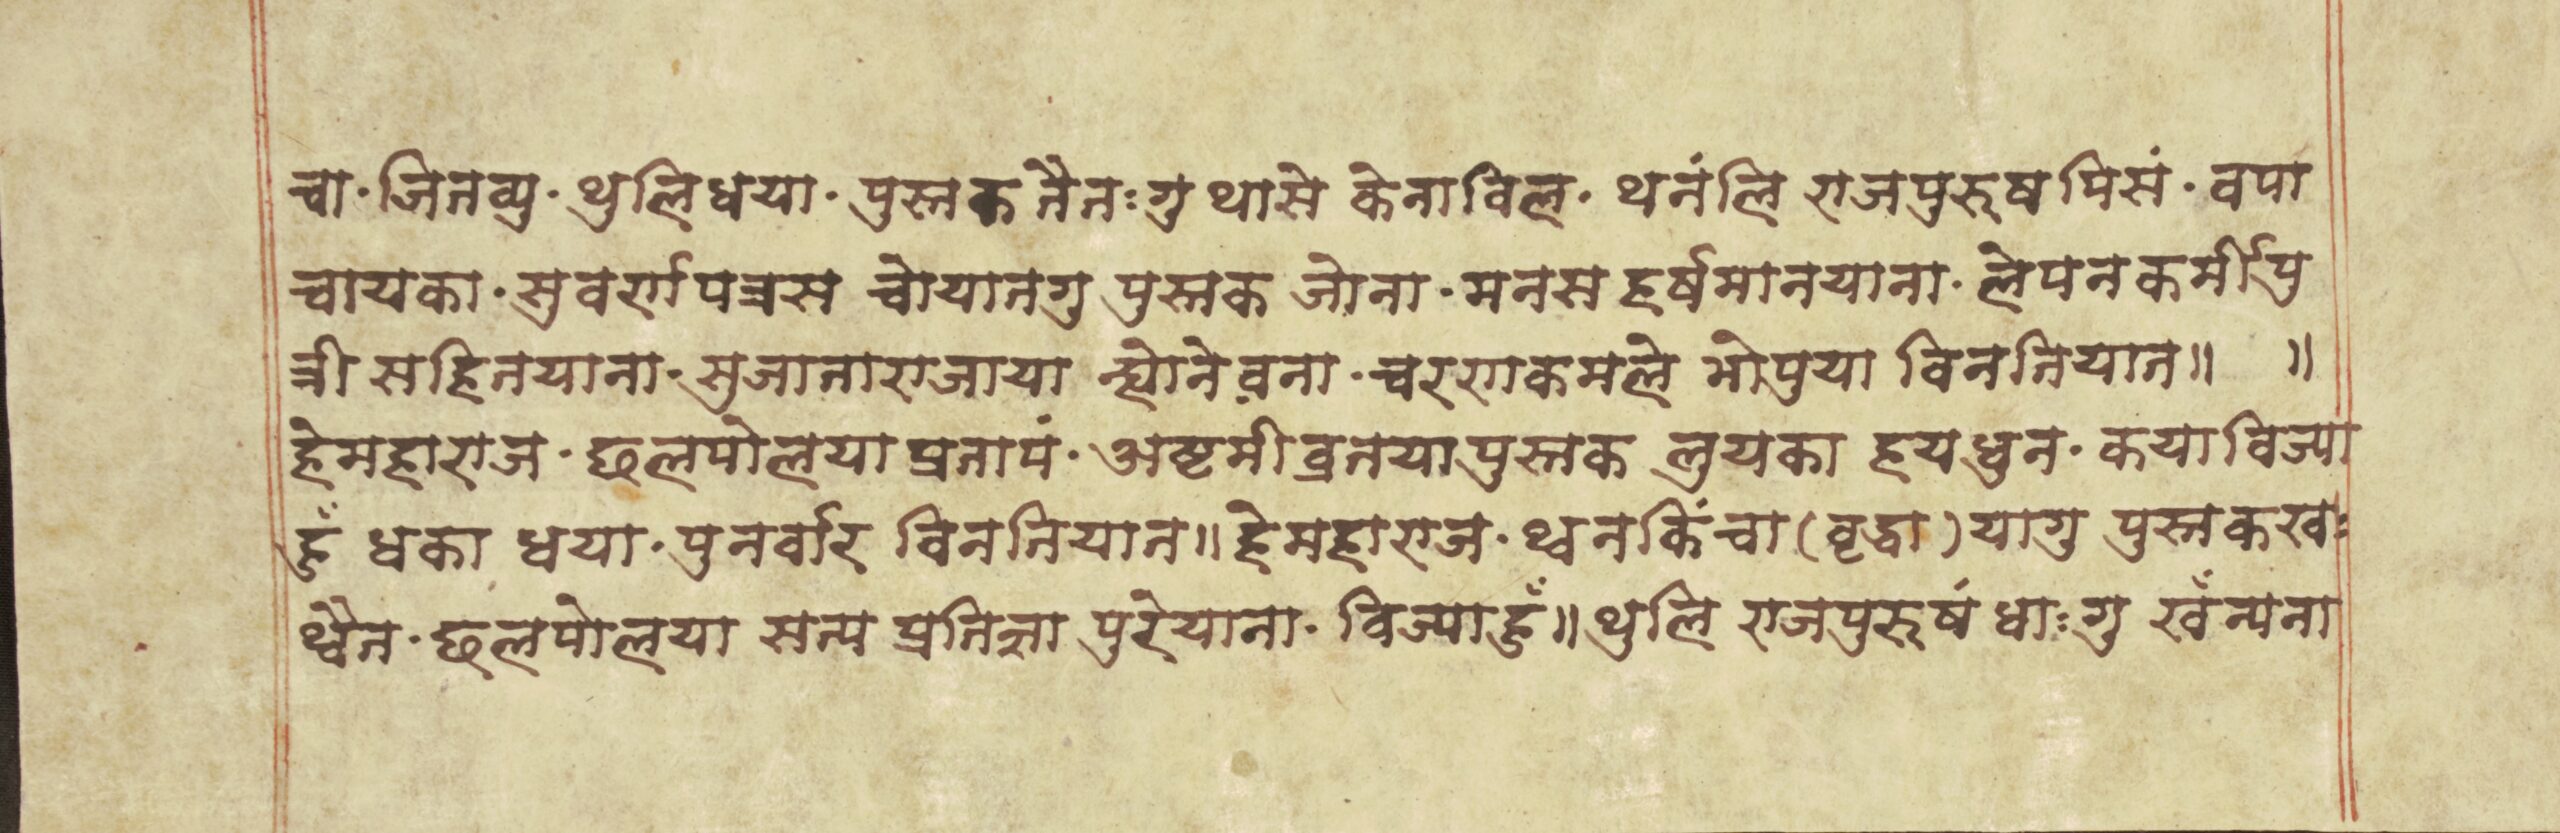 चा·जितब्यु·थुलिधया·पुस्तक तैतःगु थासे केनाविल·थनंलि राजपुरुषपिसं·वपा
चायका·सुवर्णपत्रस चोयातगु पुस्तक जोना·मनस हर्षमानयाना·लेपनकर्मीपु
त्री सहितयाना·सुजाताराजाया न्ह्योनेवना·चरणकमले भोपुया विनतियात॥ ॥
हेमहाराज·छलपोलया प्रतापं·अष्टमीव्रतया पुस्तक लुयका हयधुन·कयाविज्या
हुँ धका धया·पुनर्वार विनतियात॥हेमहाराज·थ्वनकिंचा(वृद्धा)यागु पुस्तकखः
थ्वैत·छलपोलया सत्य प्रतिज्ञा पुरेयाना·विज्याहुँ॥थुलि राजपुरुषं धाःगु खँन्यना